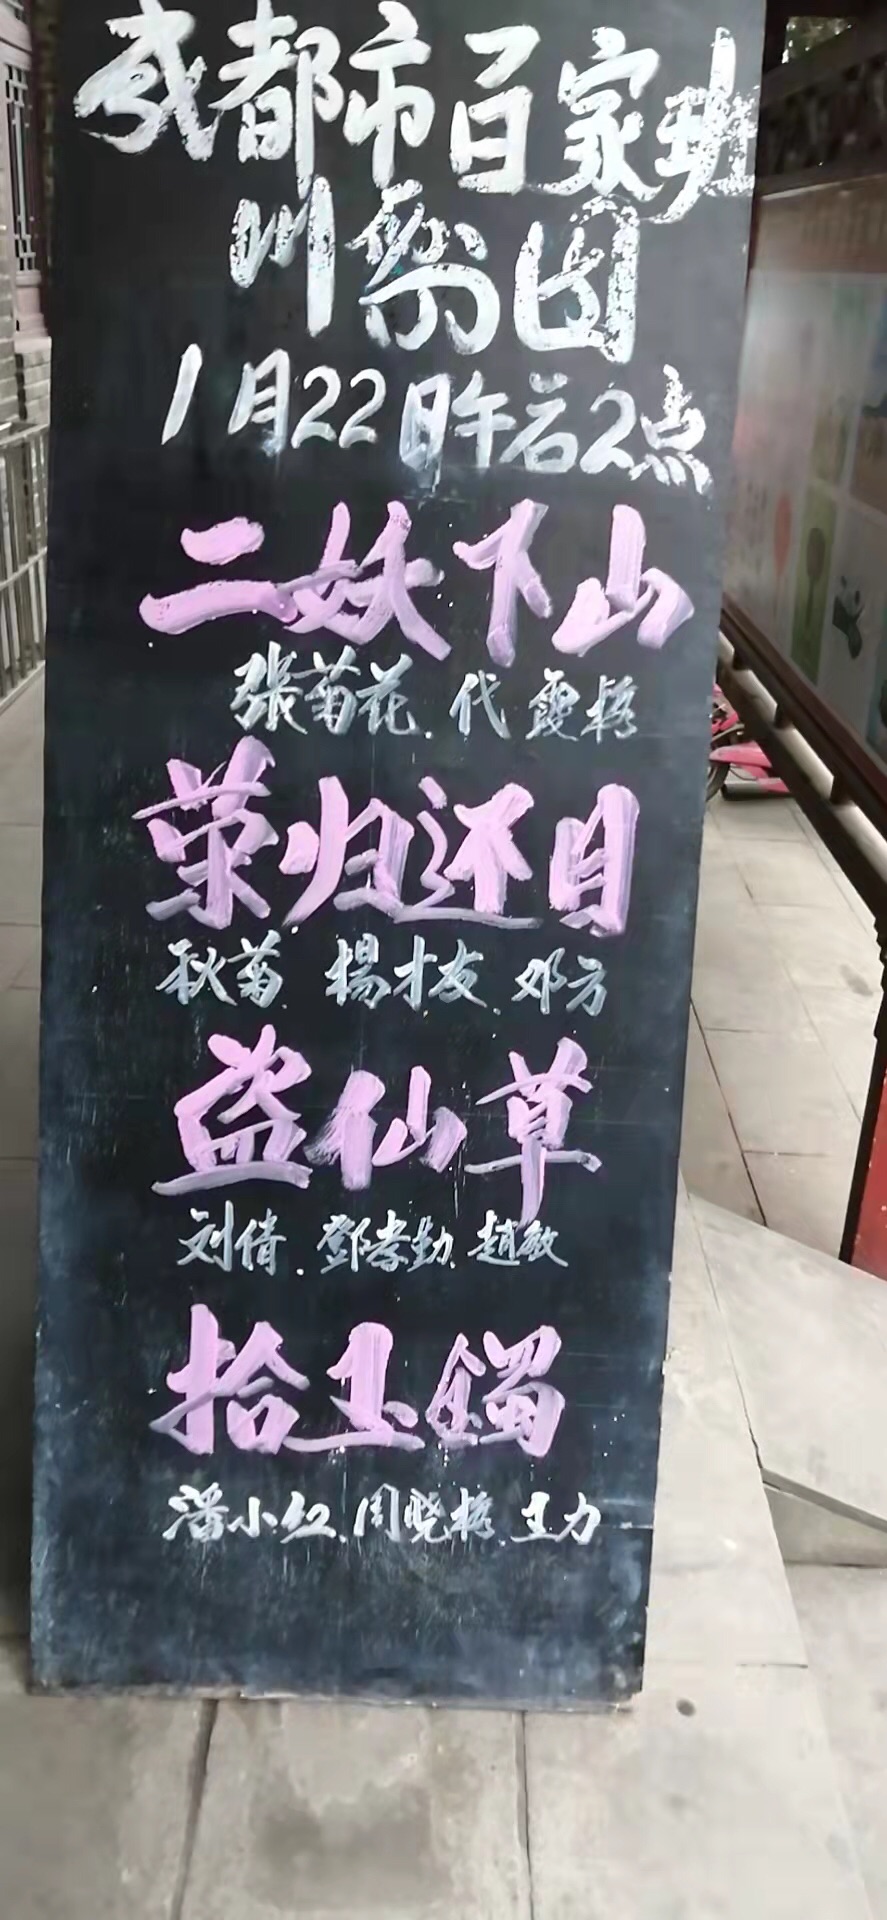 成都市百家班
川剧团
1月22日午后2点
二妖下山
張菊花.代霞梅
荣归还目
秋菊.楊才友.邓方
盗仙草
刘倩.鄧孝勤.趙敏
拾玉鐲
潘小红.周晓梅.王力